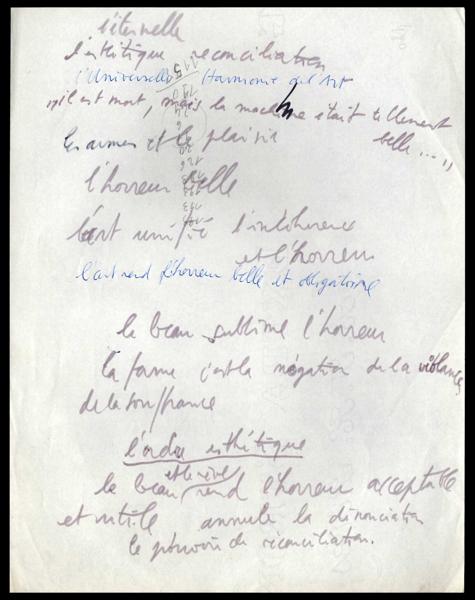 l'éternelle
l'esthétique reconciliation
l'Universelle Harmonie de l'Art
"il est mort, mais la machine était tellement
belle...."
les armes et le plaisir
l'horreur belle
l'art unifie l'incohérence
et l'horreur
l'art rend l'horreur belle et obligatoire
le beau sublime l'horreur
la forme c'est la négation de la violence
de la souffrance
l'ordre esthétique
le beau et le rêve rend l'horreur acceptable
et utile annule la dénonciation
le pouvoir de réconciliation.